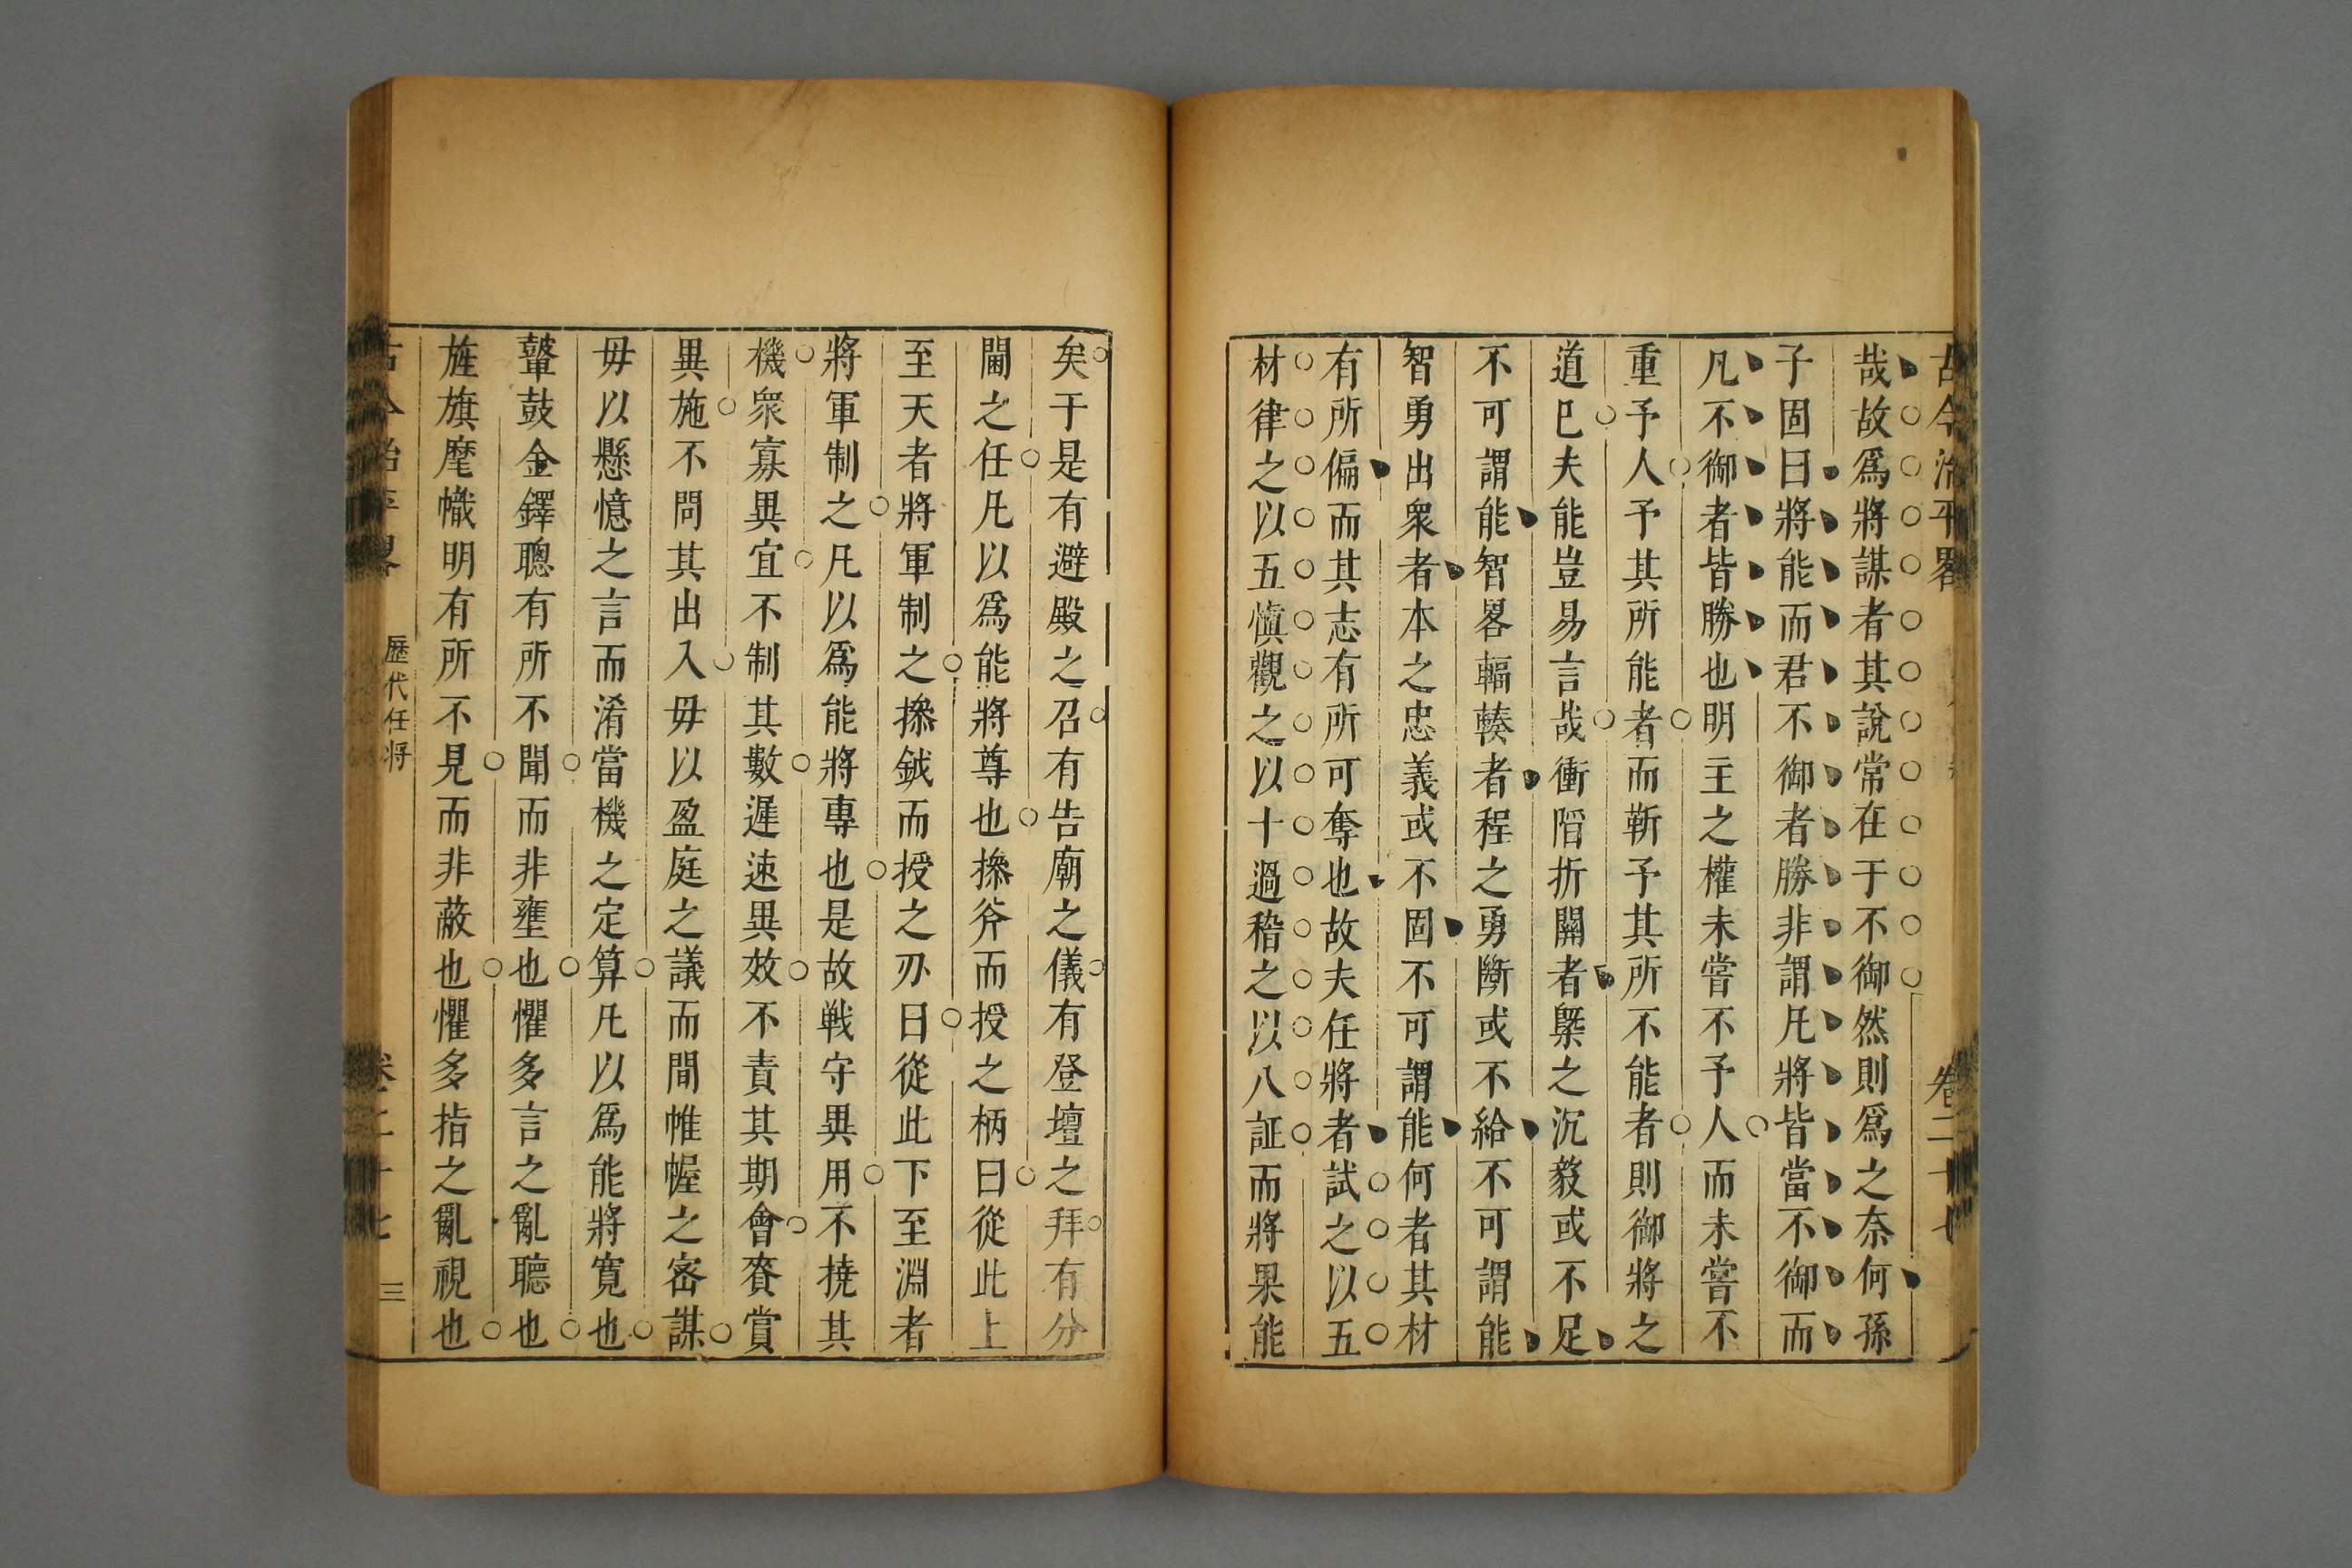 古今治平畧
卷二十七
哉故爲將謀者其說常在于不御然則爲之奈何孫
子固曰將能而君不御者勝非謂凡將皆當不御而
凡不御者皆勝也明主之權未嘗不予人而未嘗不
重予人予其所能者而靳予其所不能者則御將之
道已夫能豈易言哉衝陷折關者槩之沉毅或不足
不可謂能智畧輻輳者程之勇斷或不給不可謂能
智勇出衆者本之忠義或不固不可謂能何者其材
有所偏而其志有所可奪也故夫任將者試之以五
材律之以五慎觀之以十過稽之以八証而將果能
矣于是有避殿之召有告廟之儀有登壇之拜有分
閫之任凡以爲能將尊也操斧而授之柄曰從此上
至天者將軍制之操鉞而授之刃曰從此下至淵者
將軍制之凡以爲能將專也是故戰守異用不撓其
機衆寡異宜不制其數遲速異效不責其期會賚賞
異施不問其出入毋以盈庭之議而間帷幄之密謀
毋以懸憶之言而淆當機之定算凡以爲能將寬也
鼙鼓金鐸聰有所不聞而非壅也懼多言之亂聽也
旌旗麾幟明有所不見而非蔽也懼多指之亂視也
古今治平畧
歷代任將
卷二十七
三